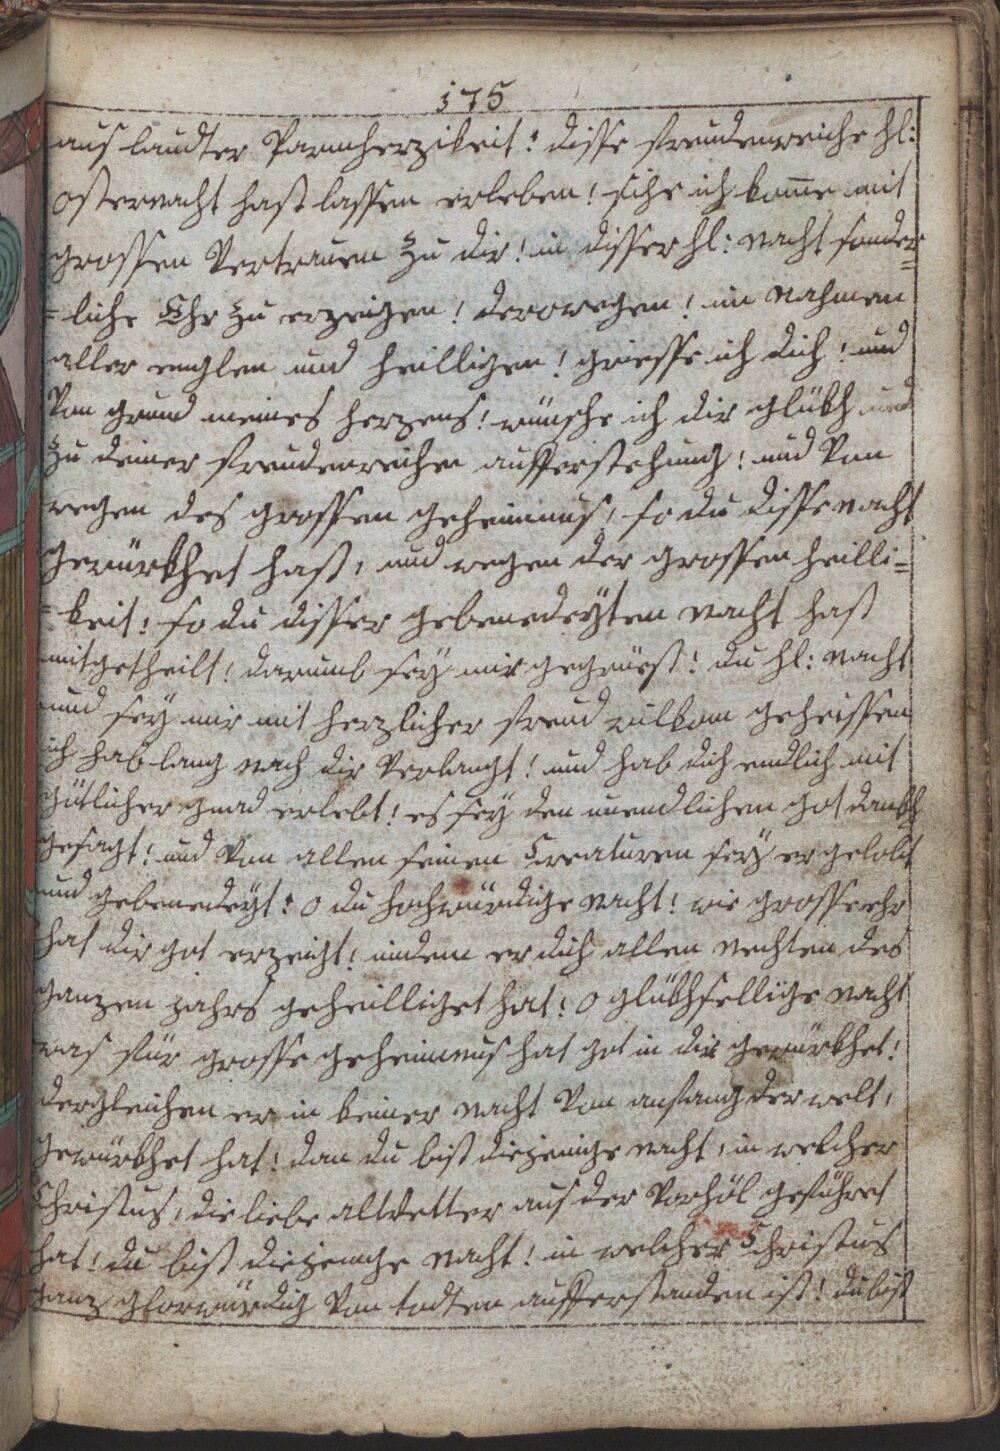 175
aus laudter Parmherzikeit: disse freudenreiche hl:
osternacht hast lassen erleben! sihe ich kom̄e mit
grossen Vertrauen zu dir! in disser hl: nacht sonder=
=liche Ehr zu erzeigen! derowegen! im Nahmen
aller englen und heilligen! griesse ich dich! und
Von grund meines herzens! wünsche ich dir glükh und
zu deiner freudenreichen aufferstehung! und Von
wegen des grossen geheimnus, so du disse nacht
gewürkhet hast, und wegen der grossen heilli=
=keit! so du disser gebenedeyten nacht hast
mitgetheilt! darumb sey mir gegrüest! du hl: nacht
und sey mir mit herzlicher freud wilkom geheissen
ich hab lang nach dir Verlangt! und hab dich endlich mit
götlicher gnad erlebt! es sey den unendlichen got dankh
gesagt! und Von allen seinen Creaturen sey er gelobt
und gebenedeyt: o du hochwürdige nacht! wie grosse ehr
hat dir got erzeigt! indem er dich allen nechten des
ganzen jahrs geheilliget hat: o glükhsellige nacht
was für grosse geheimnus hat got in dir gewürkhet!
dergleichen er in keiner nacht Von anfang der welt,
gewürkhet hat! dan du bist diejenige nacht, in welcher
Christus, die liebe altVetter aus der Vorhöl geführet
hat! du bist diejenige nacht! in welcher Christus
ganz glorwürdig Von todten aufferstanden ist! du bist